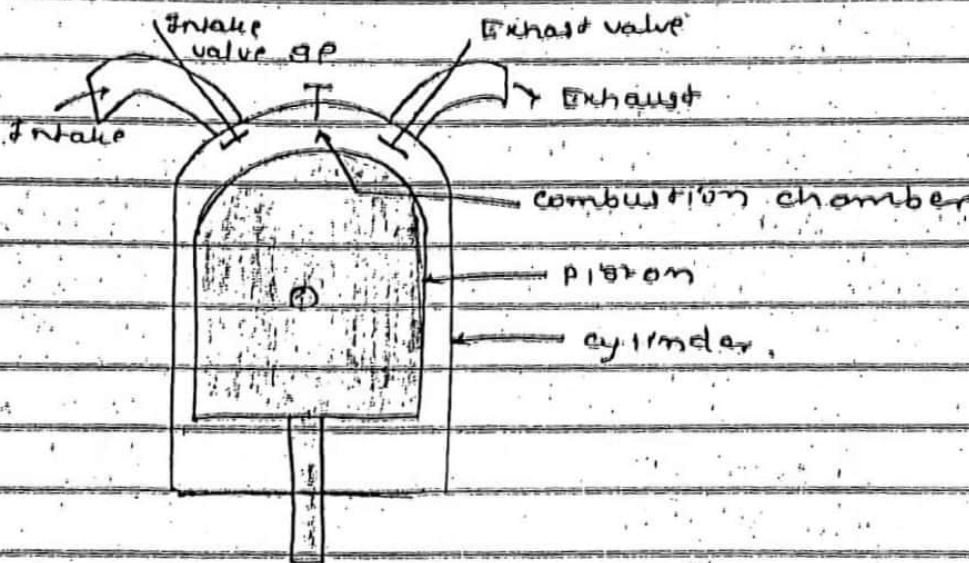 Intake
valve SP
Exhast valve
Intake
Exhaust
combustion chamber
piston
cylinder.